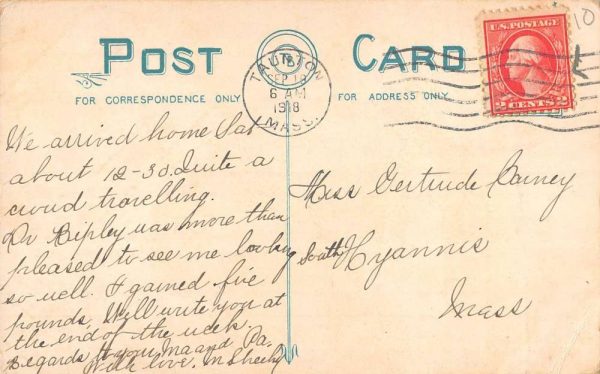 POST CARD
FOR CORRESPONDENCE ONLY
FOR ADDRESS ONLY
TAUNTON
SEP 10
6 AM
1918
MASS.
U.S. POSTAGE
2 CENTS 2
10
We arrived home Sat
about 12-30. Quite a
crowd travelling.
Dr Ripley was more than
pleased to see me looking
so well. I gained five
pounds. Will write you at
the end of the week.
Regards to your Ma and Pa.
With love. M Sheehy
Miss Gertrude
South Hyannis
Mass